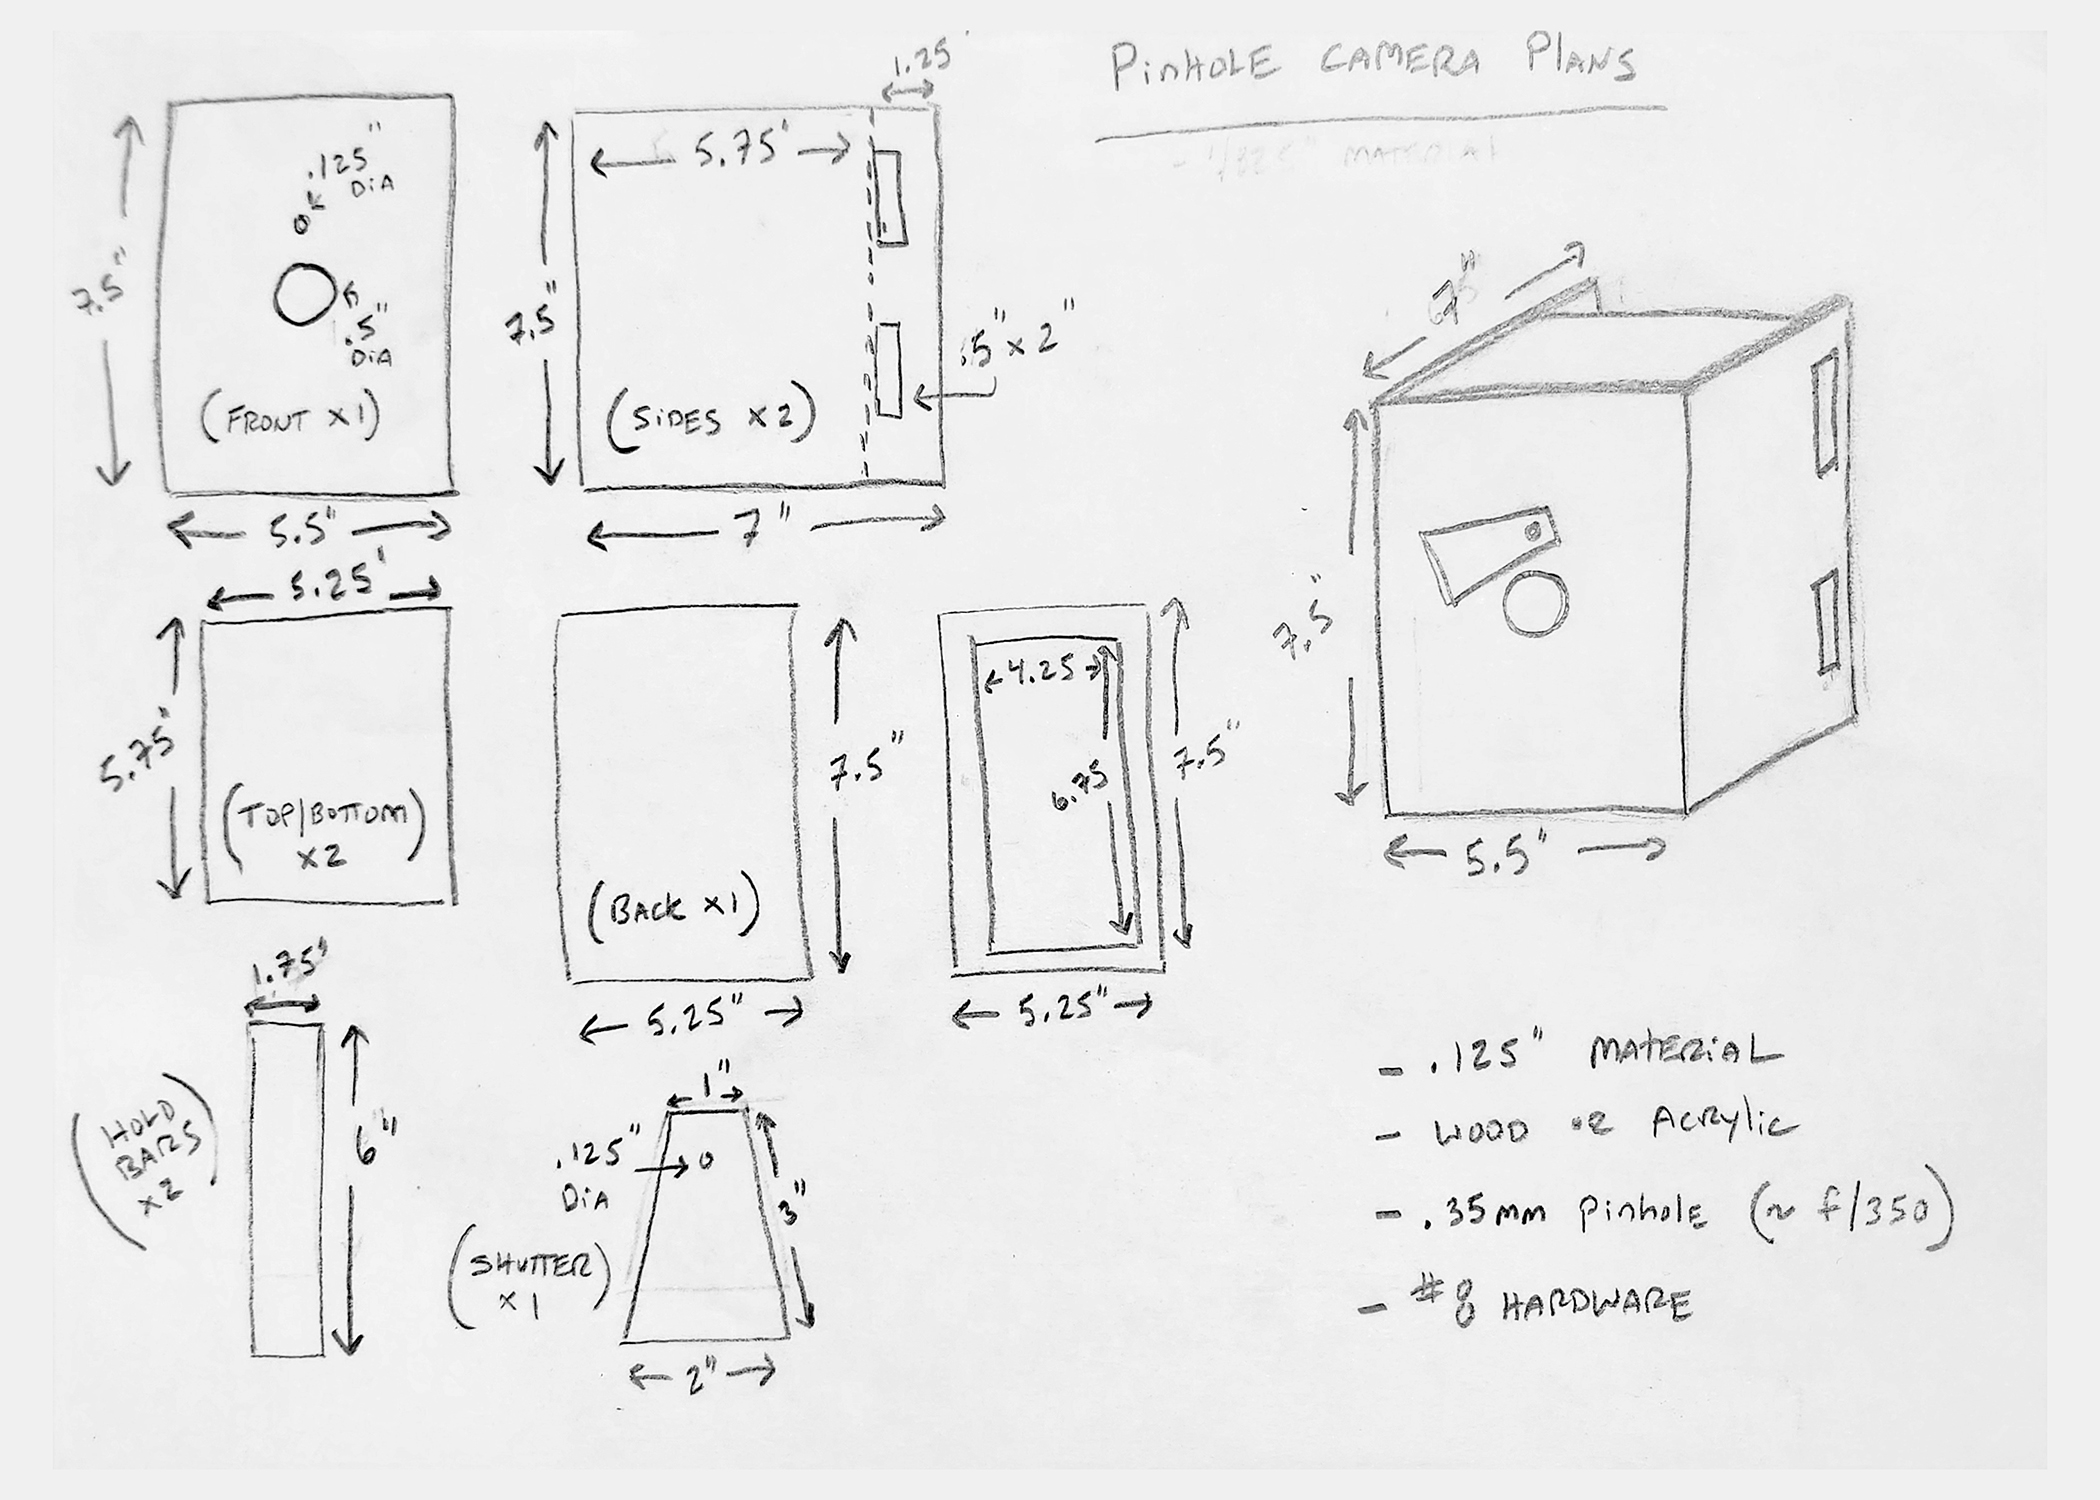 PinHOLE CAMERA PlANS
- 1/325" MATERIAL
1.25'
7.5"
.125"
DiA
.5"
DiA
(FRONT x1)
5.5"
5.75'
7.5"
.5" x 2"
(SiDES x2)
7"
7"
7.5"
5.5"
5.25'
5.75"
(TOP/BOTTOM)
x2
7.5"
(BACK x1)
5.25"
4.25
6.75
7.5"
5.25"
1.75'
6"
(HOLD
BARS
x2)
1"
.125"
DiA
3"
(SHUTTER
x1)
2"
- .125" MATERiAL
- WOOD OR ACRYlic
- .35mm Pinhole (~ f/350)
- #8 HARDWARE